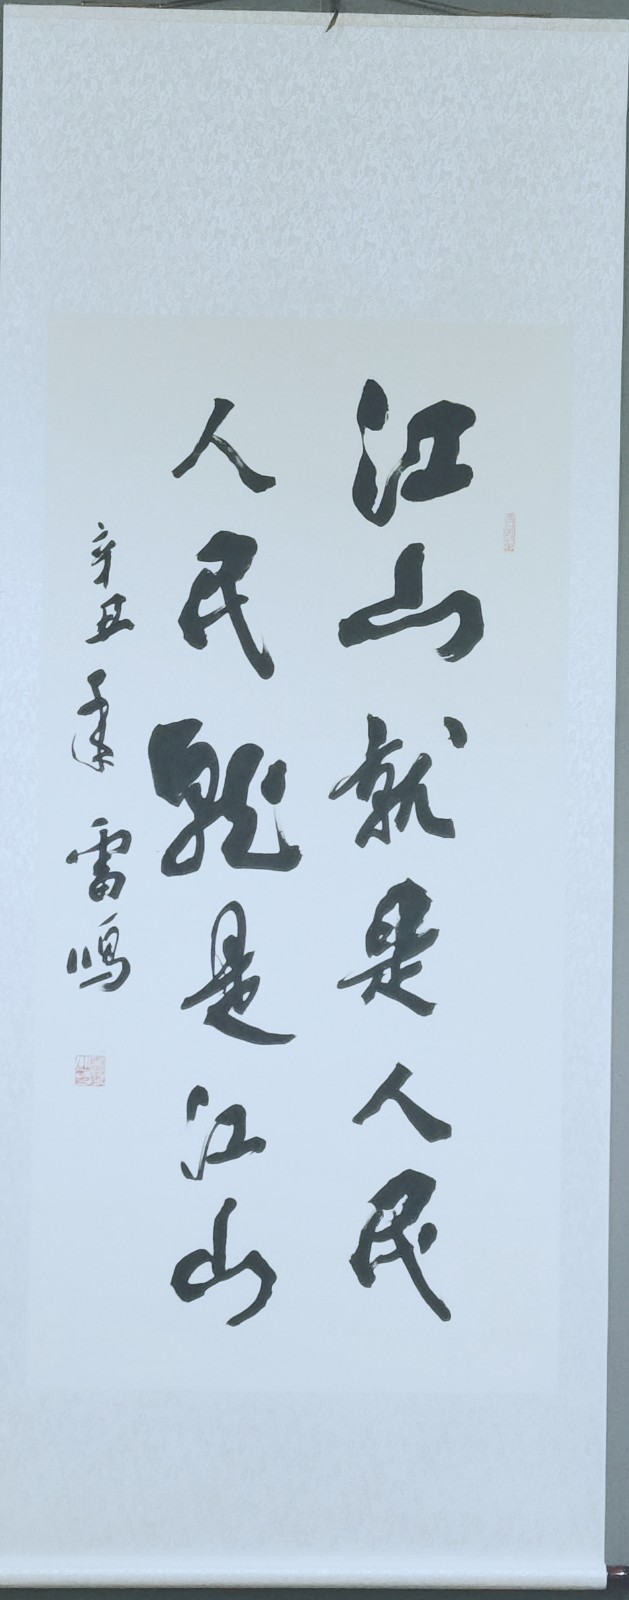 江山就是人民
人民就是江山
辛丑年 雷鸣